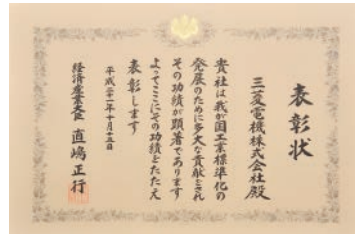 表彰状
三菱電機株式会社殿
貴社は我が国工業標準化の
発展のために多大な貢献をされ
その功績が顕著であります
よってここにその功績をたたえ
表彰します
平成二十一年十月十五日
経済産業大臣 直嶋正行